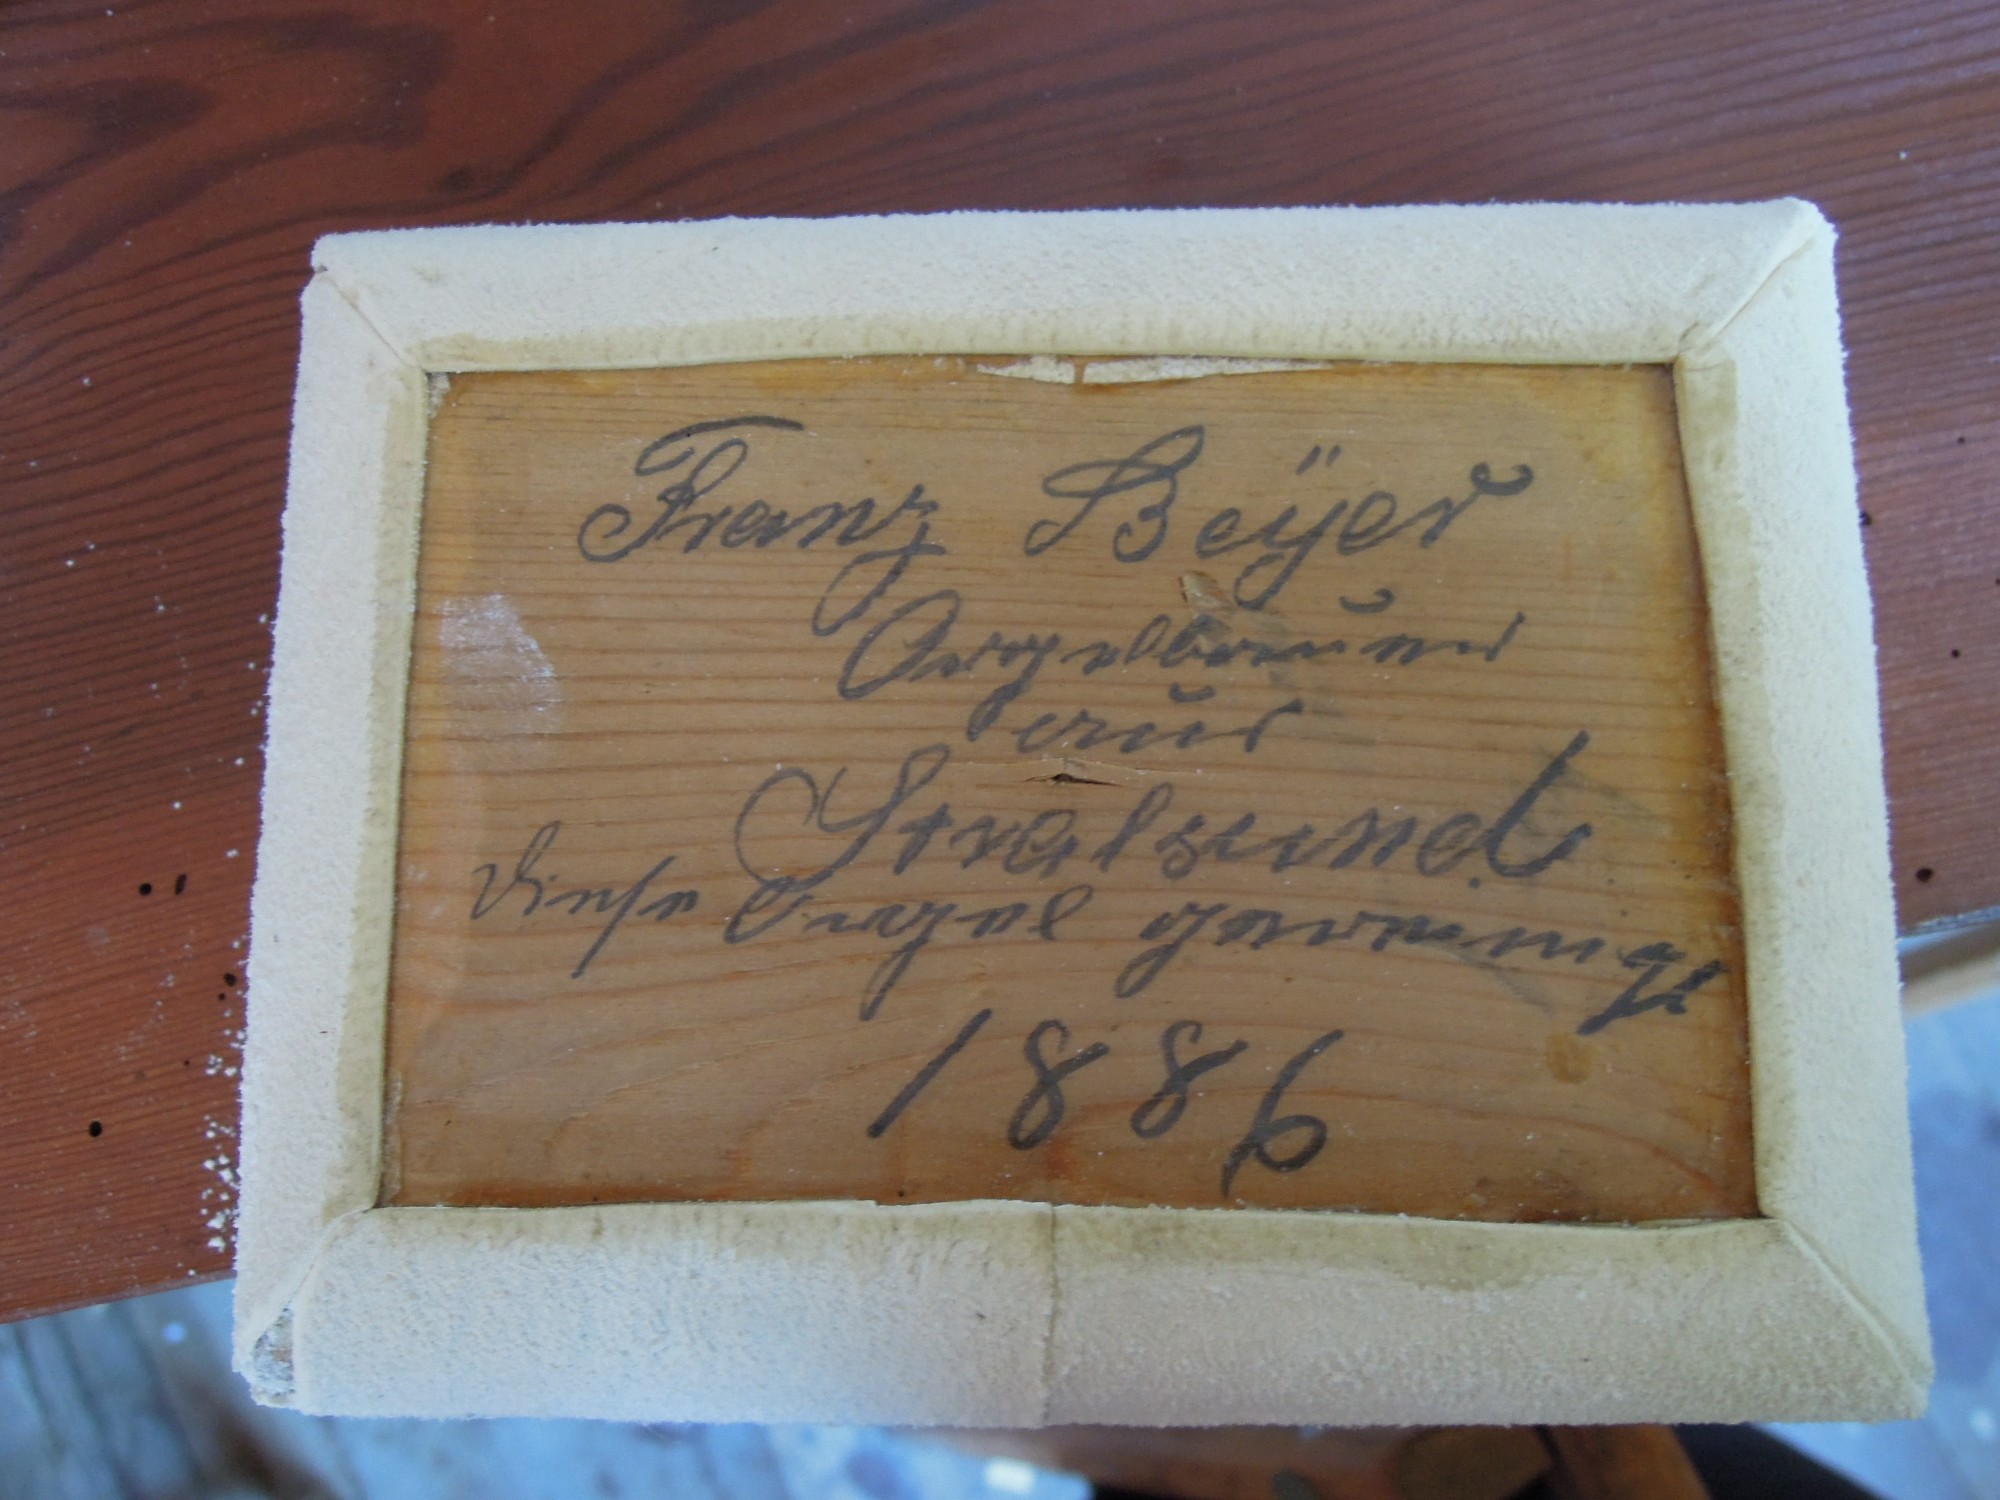 Franz Beÿer
Orgelbauer
aus
Stralsund
diese Orgel gereinigt
1886